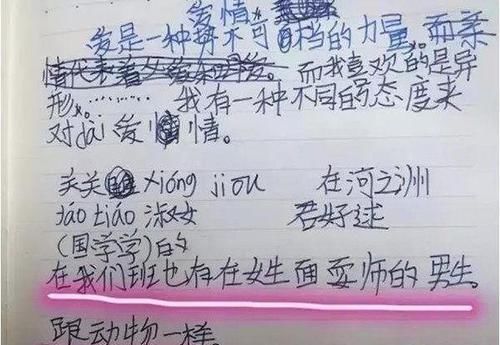 爱情。
爱是一种不可档的力量。而亲
情代表着父爱和母爱。而我喜欢的是异
形。……… 我有一种不同的态度来
对dài 爱情。
关关 xióng jiou 在河之洲
yáo tiáo 淑女 君好逑
(国学学)的
在我们班也存在女生面耍师的男生。
跟动物一样。